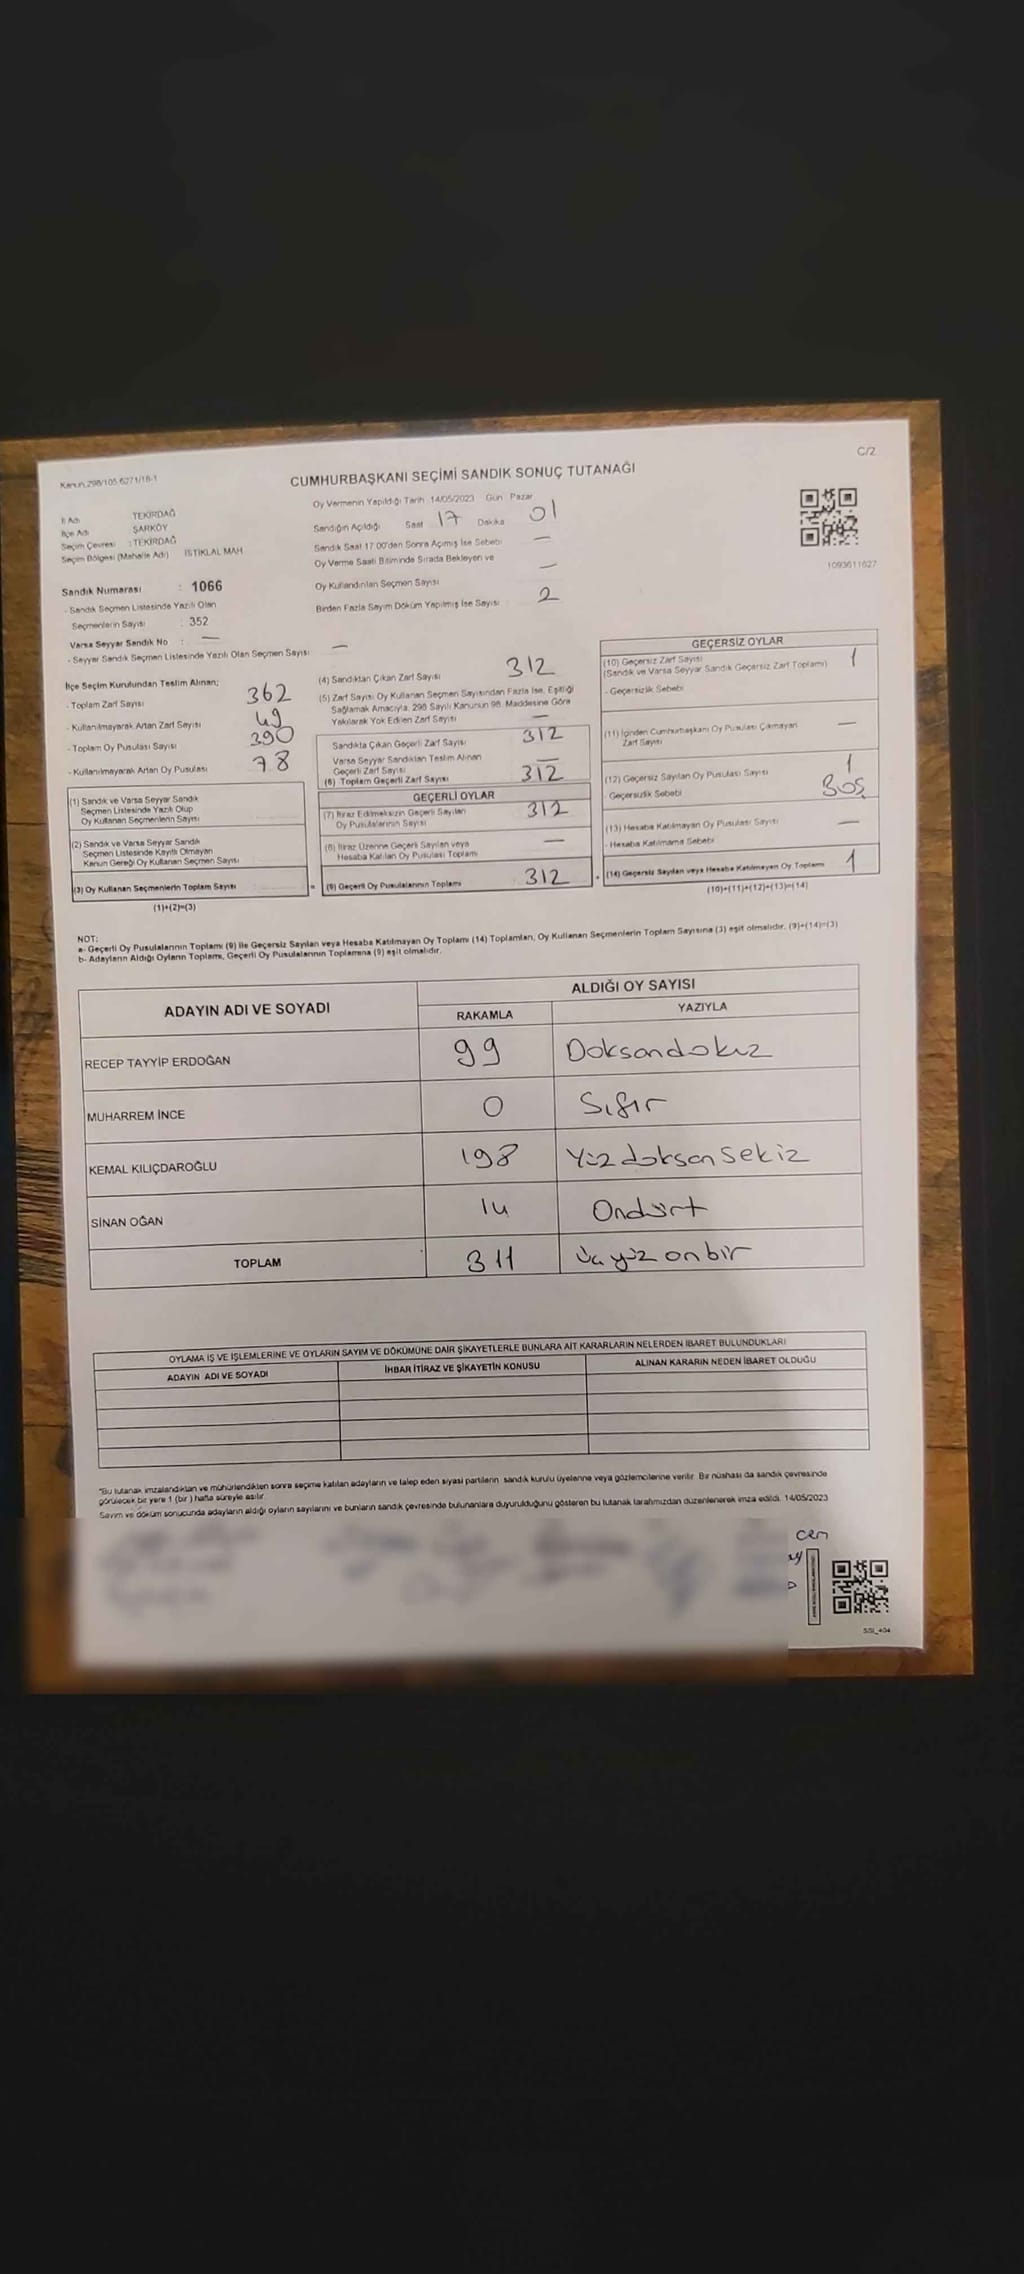 C/2
Kanun,298/105 6271/18-1
CUMHURBAŞKANI SEÇİMİ SANDIK SONUÇ TUTANAĞI
İl Adı TEKİRDAĞ
İlçe Adı ŞARKÖY
Seçim Çevresi : TEKİRDAĞ
Seçim Bölgesi (Mahalle Adı) İSTİKLAL MAH
Oy Vermenin Yapıldığı Tarih 14/05/2023 Gün Pazar
Sandığın Açıldığı Saat 17 Dakika 01
Sandık Saat 17 00'den Sonra Açımış İse Sebebi —
Oy Verme Saati Bitiminde Sırada Bekleyen ve
Oy Kullandırılan Seçmen Sayısı —
Birden Fazla Sayım Döküm Yapılmış İse Sayısı 2
1093611627
Sandık Numarası : 1066
- Sandık Seçmen Listesinde Yazılı Olan
Seçmenlerin Sayısı : 352
Varsa Seyyar Sandık No : —
- Seyyar Sandık Seçmen Listesinde Yazılı Olan Seçmen Sayısı —
İlçe Seçim Kurulundan Teslim Alınan;
- Toplam Zarf Sayısı 362
- Kullanılmayarak Artan Zarf Sayısı 49
- Toplam Oy Pusulası Sayısı 390
- Kullanılmayarak Artan Oy Pusulası 78
(1) Sandık ve Varsa Seyyar Sandık
Seçmen Listesinde Yazılı Olup
Oy Kullanan Seçmenlerin Sayısı
(2) Sandık ve Varsa Seyyar Sandık
Seçmen Listesinde Kayıtlı Olmayan
Kanun Gereği Oy Kullanan Seçmen Sayısı
(3) Oy Kullanan Seçmenlerin Toplam Sayısı
(1)+(2)=(3)
(4) Sandıktan Çıkan Zarf Sayısı 312
(5) Zarf Sayısı Oy Kullanan Seçmen Sayısından Fazla İse, Eşitliği
Sağlamak Amacıyla, 298 Sayılı Kanunun 98. Maddesine Göre
Yakılarak Yok Edilen Zarf Sayısı —
Sandıkta Çıkan Geçerli Zarf Sayısı 312
Varsa Seyyar Sandıktan Teslim Alınan
Geçerli Zarf Sayısı —
(6) Toplam Geçerli Zarf Sayısı 312
GEÇERLİ OYLAR
(7) İtiraz Edilmeksizin Geçerli Sayılan
Oy Pusulalarının Sayısı 312
(8) İtiraz Üzerine Geçerli Sayılan veya
Hesaba Katılan Oy Pusulası Toplamı —
= (9) Geçerli Oy Pusulalarının Toplamı 312 +
GEÇERSİZ OYLAR
(10) Geçersiz Zarf Sayısı 1
(Sandık ve Varsa Seyyar Sandık Geçersiz Zarf Toplamı)
- Geçersizlik Sebebi
(11) İçinden Cumhurbaşkanı Oy Pusulası Çıkmayan
Zarf Sayısı —
(12) Geçersiz Sayılan Oy Pusulası Sayısı 1
- Geçersizlik Sebebi Boş
(13) Hesaba Katılmayan Oy Pusulası Sayısı —
- Hesaba Katılmama Sebebi
(14) Geçersiz Sayılan veya Hesaba Katılmayan Oy Toplamı 1
(10)+(11)+(12)+(13)=(14)
NOT:
a- Geçerli Oy Pusulalarının Toplamı (9) ile Geçersiz Sayılan veya Hesaba Katılmayan Oy Toplamı (14) Toplamları, Oy Kullanan Seçmenlerin Toplam Sayısına (3) eşit olmalıdır. (9)+(14)=(3)
b- Adayların Aldığı Oyların Toplamı, Geçerli Oy Pusulalarının Toplamına (9) eşit olmalıdır.
ADAYIN ADI VE SOYADI ALDIĞI OY SAYISI
RAKAMLA YAZIYLA
RECEP TAYYİP ERDOĞAN 99 Doksandokuz
MUHARREM İNCE 0 Sıfır
KEMAL KILIÇDAROĞLU 198 Yüz doksan sekiz
SİNAN OĞAN 14 Ondört
TOPLAM 311 üç yüz on bir
OYLAMA İŞ VE İŞLEMLERİNE VE OYLARIN SAYIM VE DÖKÜMÜNE DAİR ŞİKAYETLERLE BUNLARA AİT KARARLARIN NELERDEN İBARET BULUNDUKLARI
ADAYIN ADI VE SOYADI İHBAR İTİRAZ VE ŞİKAYETİN KONUSU ALINAN KARARIN NEDEN İBARET OLDUĞU
*Bu tutanak imzalandıktan ve mühürlendikten sonra seçime katılan adayların ve talep eden siyasi partilerin sandık kurulu üyelerine veya gözlemcilerine verilir. Bir nüshası da sandık çevresinde
görülecek bir yere 1 (bir ) hafta süreyle asılır
Sayım ve döküm sonucunda adayların aldığı oyların sayılarını ve bunların sandık çevresinde bulunanlara duyurulduğunu gösteren bu tutanak tarafımızdan düzenlenerek imza edildi. 14/05/2023